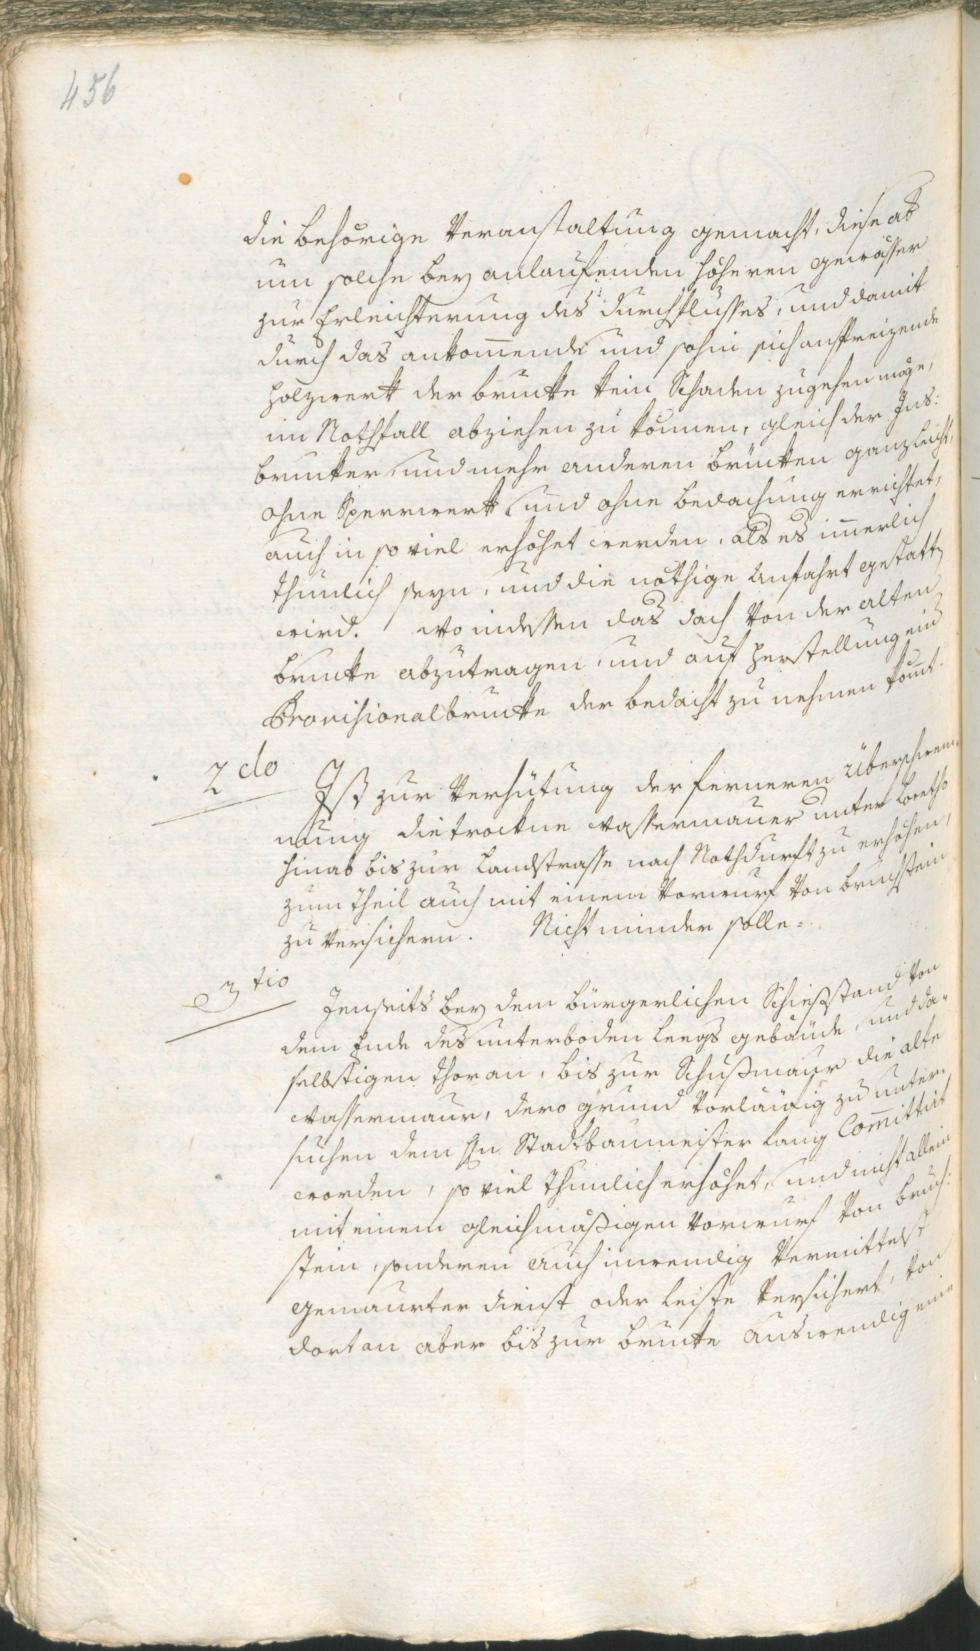 456
die behörige Veranstaltung gemacht, diese ab
um solche bey anlaufenden höheren gewässer
zur Erleichterung des durchflusses, und damit
durch das ankom̄ende und sohin sich anspreizende
holzwerk der brucke kein Schaden zugehen möge,
im Nothfall abziehen zu können, gleich der Ins:
brucker und mehr anderen brücken ganz leicht,
ohne Sperrwerk und ohne bedachung errichtet,
auch in so viel erhöhet werden, als es im̄erlich
thunlich seyn, und die nöthige Anfahrt gestatten
wird. Wo indessen das dach von der alten
brucke abzutragen und auf herstellung ein
Provisionalbrucke der bedacht zu nehmen kom̄t.
2do Ist zur Verhütung der ferneren Überschwem-
mung die trockne wassermauer unter Loretho
hinab bis zur Landstrasse nach Nothdurft zu erhöhen,
zum theil auch mit einem Vorwurf von bruchstein
zu versichern. Nicht minder solle=
3tio Jenseits bey dem bürgerlichen Schießstand von
dem Ende des unterboden Leegs gebäude, und da-
selbstigen thor an, bis zur Schußmaur die alte
wassermaur, dero grund vorläufig zu unter-
suchen dem Hn Stadtbaumeister Lang Com̄ittirt
worden, so viel thunlich erhöhet, und nicht allein
mit einem gleichmäßigen Vorwurf von bruch:
stein, sonderen auch inwendig vermittelst
gemaurter dienst oder leiste versichert, von
dort an aber bis zur brucke auswendig eine